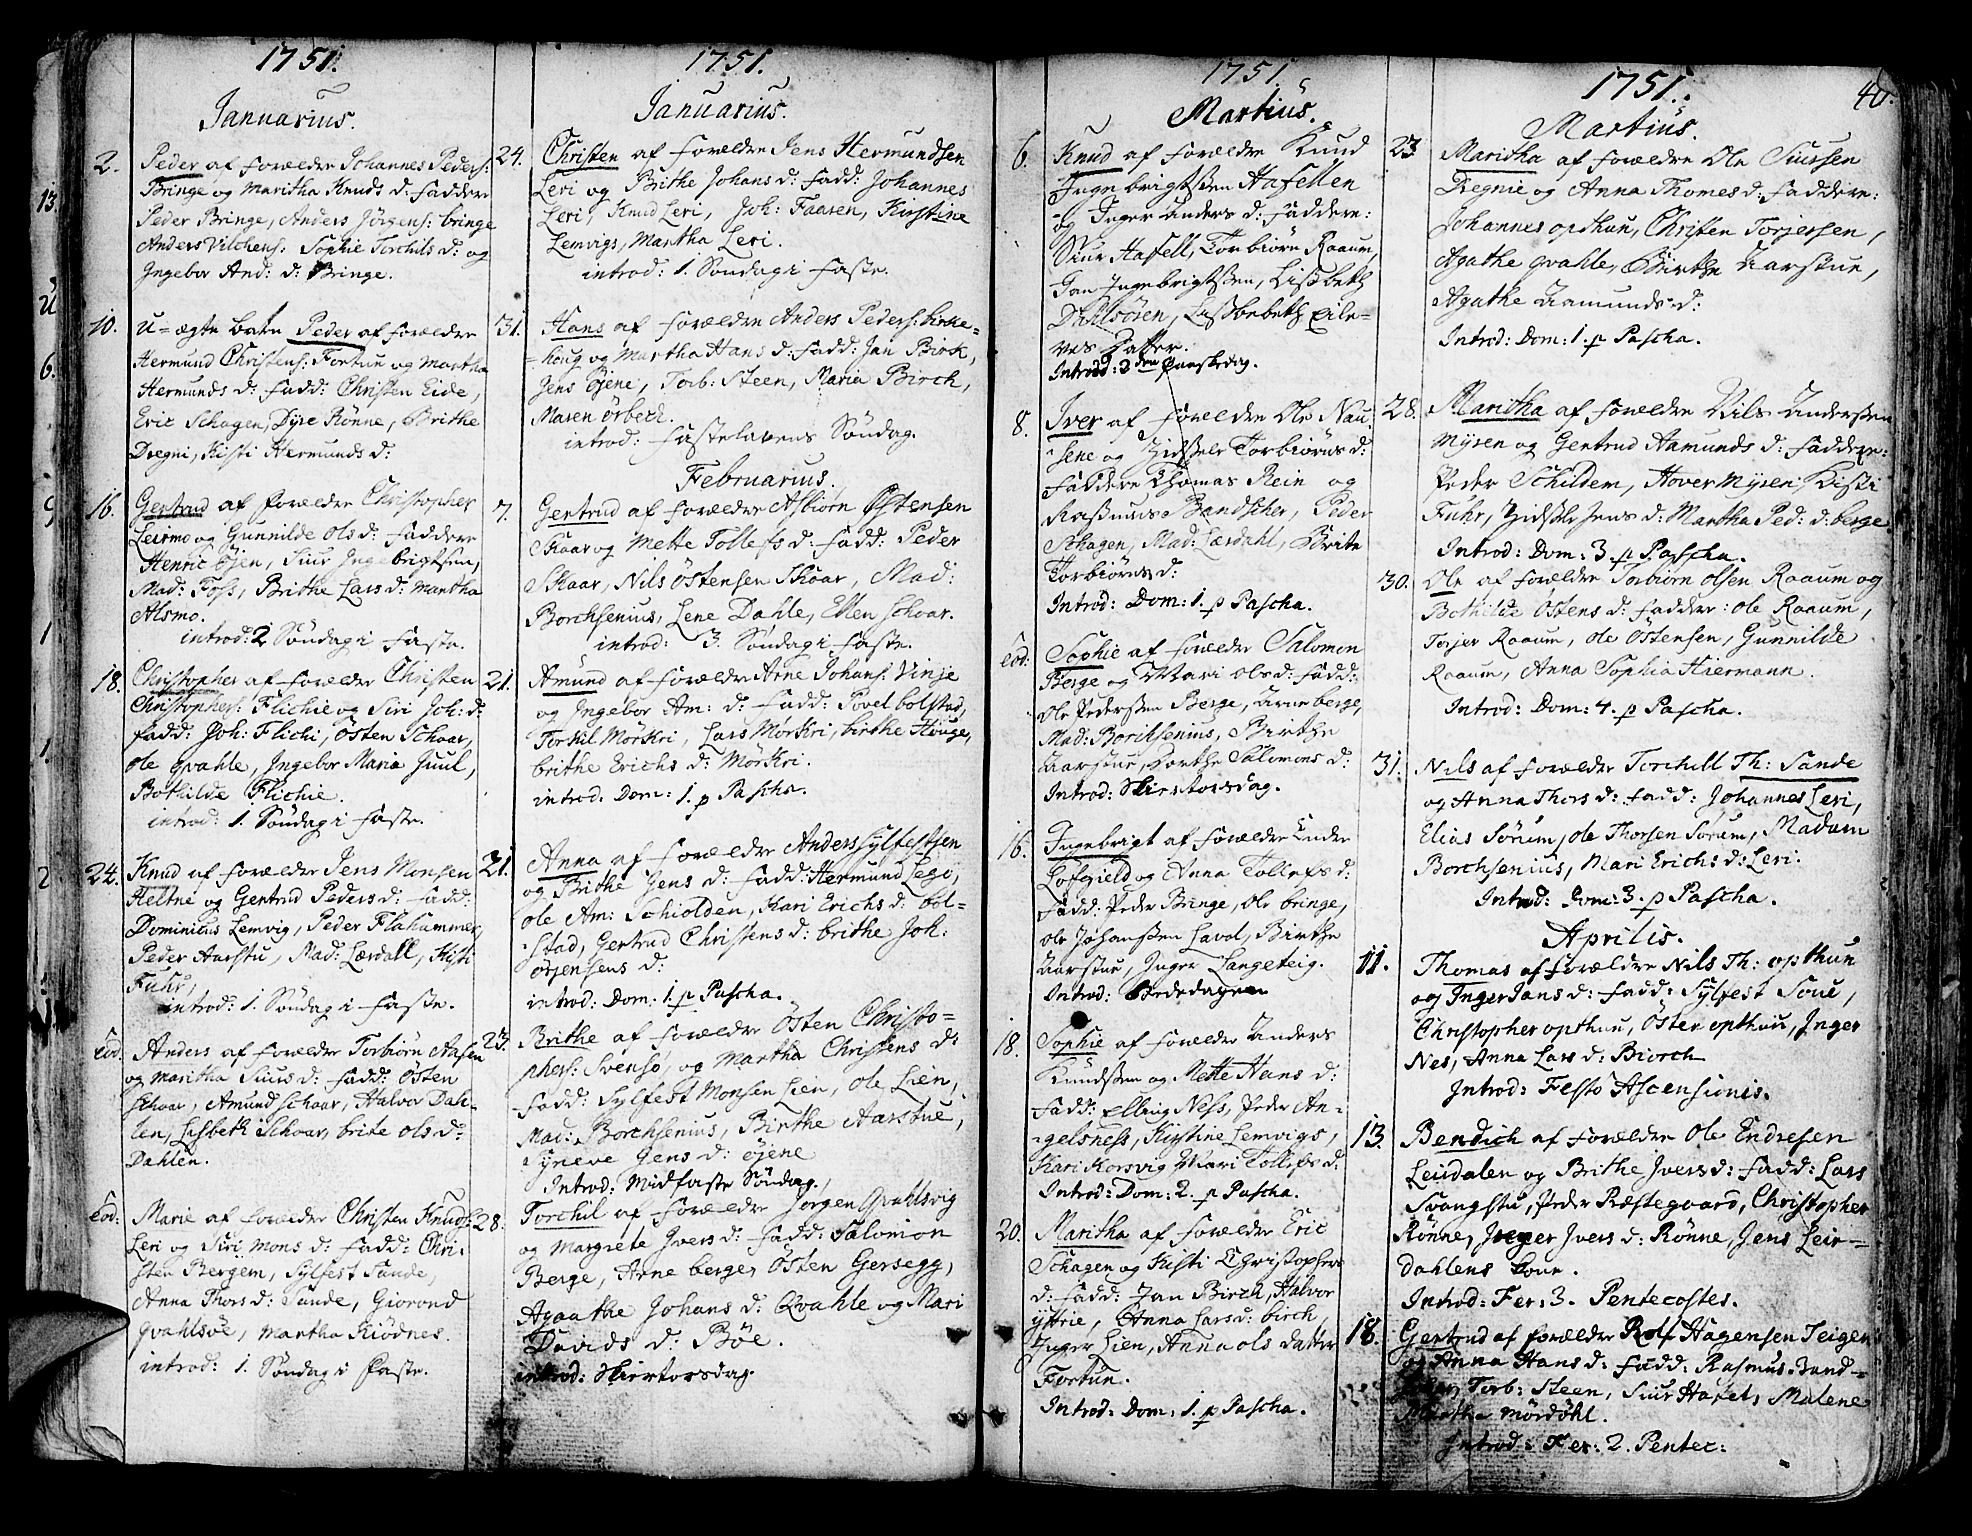 1751.
Januarius.
2. Peder af forældre Johannes Peders:
Bringe og Maritha Knuds d: Faddere
Peder Bringe, Anders Jörgens: bringe
Anders Vilchens: Sophie Torchils d: og
Ingebor And: d: Bringe.
10. u=ægte barn Peder af forældre
Hermund Christens: Fortun og Martha
Hermunds d: Fadd: Christen Eide,
Eric Schagen, Dyre Rönne, Brithe
Dregni, Kisti Hermunds d:
16. Gertrud af forældre Christopher
Leirmo og Gunnilde Ols d: Faddere
Henric Öjen, Siur Ingebrigtsen,
Mad: Foss, Brithe Lars d: Martha
Alsmo.
introd: 2 Söndag i Faste.
18. Christopher af forældre Christen
Christophers: Flichie og Siri Joh: d:
fadd: Joh: Flichi, Östen Schoar,
ole qvahle, Ingebor Maria Juul,
Bothilde Flichie.
introd: 1. Söndag i Faste.
24. Knud af forældre Jens Monsen
Heltne og Gertrud Peders d: Fadd:
Dominicus Lemvig, Peder Flahammer,
Peder Aarstu, Mad: Lærdall, Kisti
Fuhr,
introd: 1. Söndag i Faste.
eod. Anders af forældre Torbiörn Aasen
og Maritha Siurs d: Fadd: Östen
Schoar, Amund Schoar, Halvor Dah-
len, Lisbeth Schoar, brite ols d:
Dahlen.
eod: Marie af forældre Christen Knuds:
Leri og Siri Mons d: Fadd: Chri-
sten Bergem, Sylfest Sande,
Anna Thors d: Sande, Giorond
qvahlsöe, Martha Kiödnes.
introd: 1. Söndag i Faste.
1751.
Januarius.
24. Christen af forældre Jens Hermundsen
Leri og Brithe Johans d: Fadd: Johannes
Leri, Knud Leri, Joh: Faaren, Kirstine
Lemvigs, Martha Leri.
introd: 1. Söndag i Faste.
31. Hans af forældre Anders Peders: Kirke-
-houg og Martha Hans d: Fadd: Jan Birch,
Jens Öjene, Torb: Steen, Maria Birch,
Maren Örbech.
introd: Fastelavens Söndag.
Februarius.
7. Gertrud af forældre Asbiörn Östensen
Skaar og Mette Tollefs d: Fadd: Peder
Skaar, Nils Östensen Skoar, Mad:
Borchsenius, Lene Dahle, Ellen Schoar.
introd: 3. Söndag i Faste.
21. Amund af forældre Arne Johans: Vinje
og Ingebor Am: d: Fadd: Povel bolstad,
Torkil Mörkri, Lars Mörkri, birthe Houge,
brithe Erichs d: Mörkri.
introd: Dom: 1. p Pascha.
21. Anna af forældre Anders Sylfestsen
og Brithe Jens d: Fadd: Hermund Legö,
ole Am: Schiolden, Kari Erichs d: bol-
-stad, Gertrud Christens d: brithe Joh:
örjensens d:
introd: Dom: 1. p Pascha.
23. Brithe af forældre Östen Christo-
phers: Svensö, og Martha Christens d:
Fadd: Sylfest Monsen Lien, ole Lien,
Mad: Borchsenius, Birthe Aarstue,
Syneve Jens d: öjene
Introd: Midfaste Söndag.
28. Torchil af forældre Jörgen Qvahlsvig
og Margrete Ivers d: Fadd: Salomon
Berge, Arne berge, Östen Gersegg,
Agaathe Johans d: Qvahle og Mari
Davids d: Böe.
introd: Skiertorsdag.
1751
Martius.
6. Knud af forældre Knud
Ingebrigtssen Hafellen
og Inger Anders d: Faddere:
Siur Hafell, Torbiörn Raaum,
Jan Ingebrigtssen, Lissbeth
Dahlsören, Lissbebeth Eile-
ves Datter.
Introd: 3den Paaskedag.
8. Iver af forældre Ole Nau-
-sene og Zidssele Torbiörns d:
Faddere Thomas Rein og
Rassmus Bandscher, Peder
Schagen, Mad: Lærdahl, Brite
Torbiörns d:
Introd: Dom: 1. p Pascha.
eod: Sophie af forældre Salomon
Berge og Mari ols d: Fadd:
Ole Pederssen Berge, Arne berge,
Mad: Borchsenius, Birthe
Aarstue, Dorthe Salomons d:
Introd: Skiertorsdag.
16. Ingebrigt af forældre Endre
Lofgield og Anna Tollefs d:
Fadd: Peder Bringe, Ole bringe,
Ole Johanssen Lavol, Birthe
Aarstue, Inger Langeteig.
Introd: Bededagen
18. Sophie af forældre Anders
Knudssen og Mette Hans d:
Fadd: Elling Ness, Peder An-
-gelsness, Kirstine Lemvigs,
Kari Korsvig Mari Tollefs d.
Introd: Dom: 2. p Pascha.
20. Maritha af forældre Eric
Schagen og Kisti Christophers
d: Fadd: Jan Birch, Halvor
yttrie, Anna Lars d: birch,
Inger Lien, Anna ols datter
Fortun.
Introd: Dom: 1. p Pascha.
1751.
40.
Martius.
23. Maritha af forældre Ole Siurssen
Dregnie og Anna Thomes d: Faddere:
Johannes opdhun, Christen Torjerssen,
Agathe qvahle, Birthe Aarstue,
Agathe Aamunds d:
Introd: Dom: 1. p Pascha.
28. Maritha af forældre Nils Anderssen
Myren og Gertrud Aamunds d: Faddere:
Peder Schildem, Hover Myren, Kisti
Fuhr, Zidssle Jens d: Martha Ped: d: berge
Introd: Dom: 3. p Pascha.
30. Ole af forældre Torbiörn Olsen Raaum og
Bothilde Östens d: Fadder: ole Raaum,
Torjer Raaum, ole Östensen, Gunnilde
Raaum, Anna Sophia Hiermann.
Introd: Dom: 4. p Pascha.
31. Nils af forældre Torchill Th: Sande
og Anna Thors d: Fadd: Johannes Leri,
Elias Sörum, ole Thorsen Sörum, Madam
Borchsenius, Mari Erichs d: Leri.
Introd: Dom: 3. p Pascha.
Aprilis.
11. Thomas af forældre Nils Th: opthun
og Inger Jans d: Fadd: Sylfest Soue,
Christopher opthun, Östen opthun, Inger
Nes, Anna Lars d: Biorch
Introd: Festo Ascensionis.
13. Bendich af forældre Ole Endresen
Leirdalen og Brithe Ivers d: Fadd: Lars
Svangstu, Peder Præstegaard, Christopher
Rönne, Inger Ivers d: Rönne, Jens Leir-
dahlens Kone.
Introd: Fer: 3. Pentecostes.
18. Gertrud af forældre Rolf Hagensen Teigen
og Anna Hans d: Fadd: Rasmus Band-
Torb: Steen, Siur Hafel, Malene
Martha Mördöhl.
Introd: Fer: 2. Pentec: